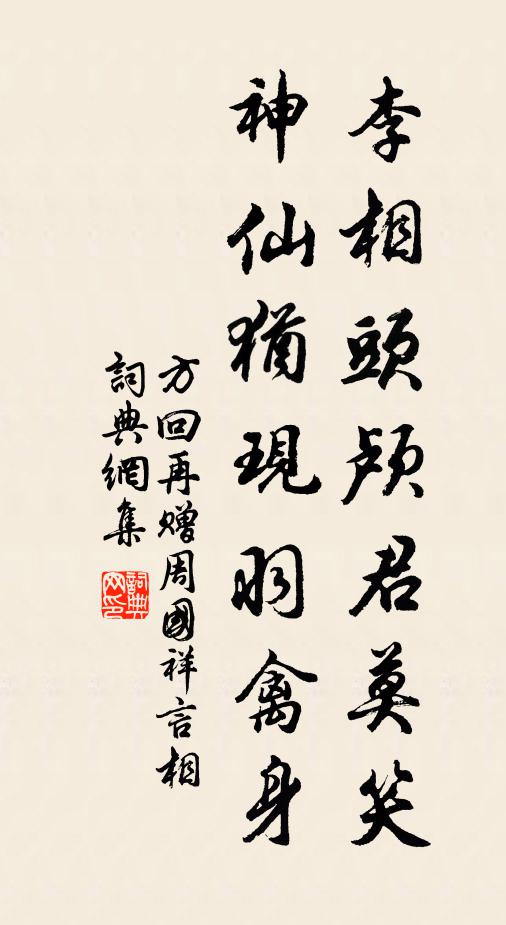 李相頭顱君莫笑
神仙猶現羽禽身
方回再贈周國祥言相
詞典網集
詞典網印